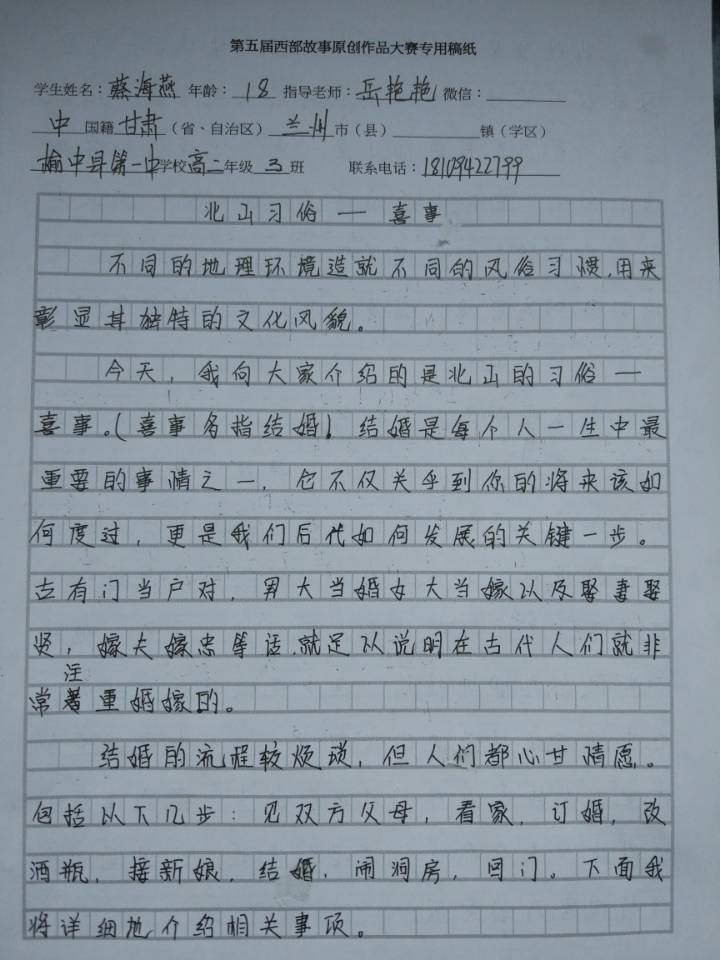 第五届西部故事原创作品大赛专用稿纸
学生姓名：蔡海燕 年龄：18 指导老师：岳艳艳 微信：
中 国籍 甘肃（省、自治区）兰州 市（县） 镇（学区）
榆中县第一中学校 高二 年级 3 班 联系电话：18109422799
北山习俗一喜事
不同的地理环境造就不同的风俗习惯，用来
彰显其独特的文化风貌。
今天，我向大家介绍的是北山的习俗一
喜事。（喜事多指结婚）结婚是每个人一生中最
重要的事情之一，它不仅关乎到你的将来该如
何度过，更是我们后代如何发展的关键一步。
古有门当户对，男大当婚女大当嫁以及娶妻娶
贤，嫁夫嫁忠等话，就足以说明在古代人们就非
注
常着重婚嫁的。
结婚的流程较烦琐，但人们都心甘情愿。
包括以下几步：见双方父母，看家，订婚，改
酒瓶，接新娘，结婚，闹洞房，回门。下面我
将详细地介绍相关事项。